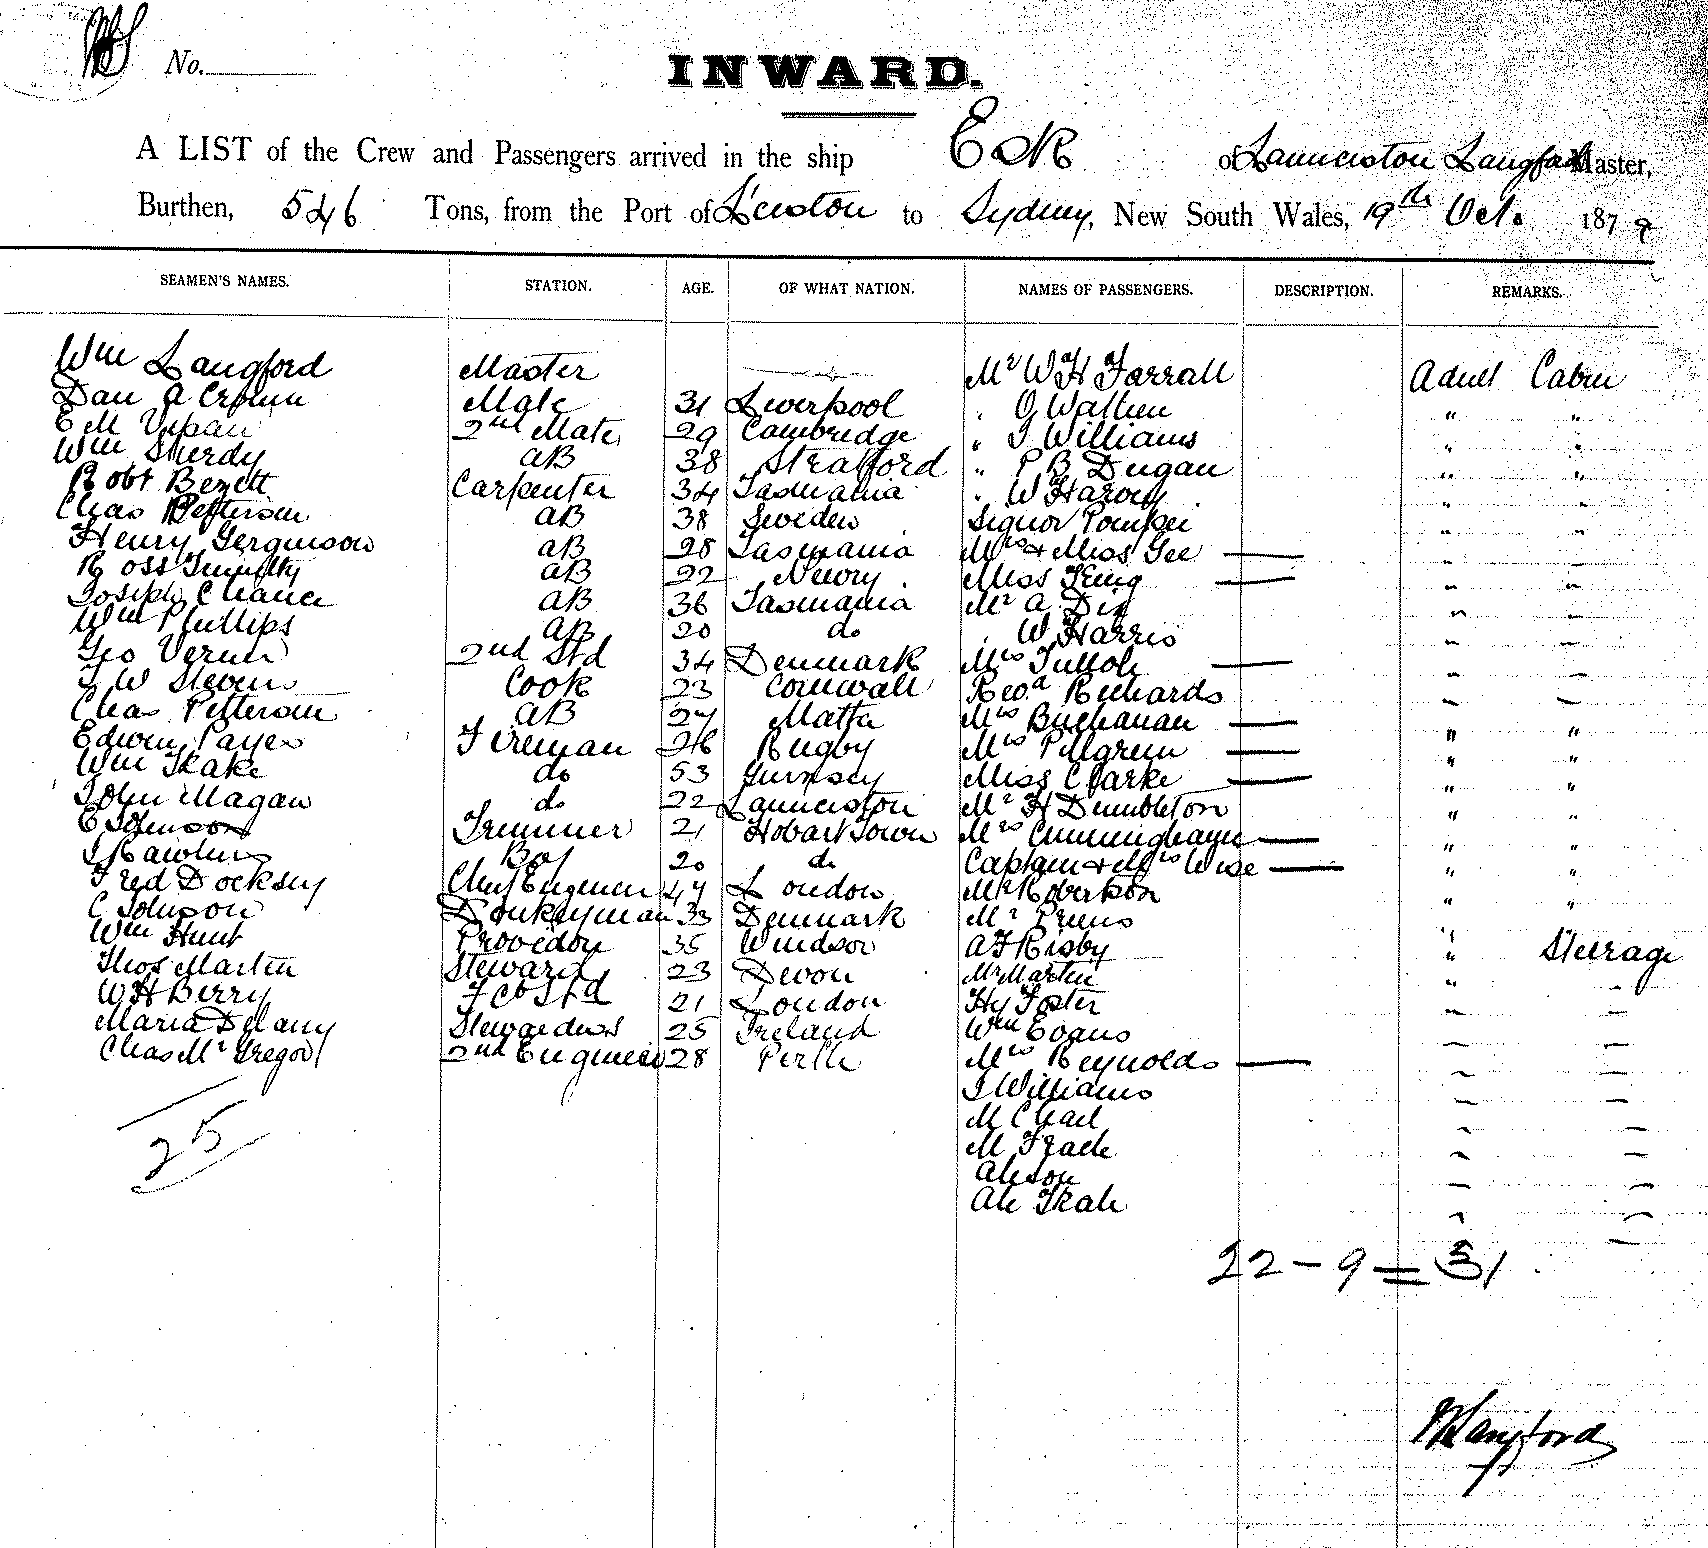 No.
INWARD.
A LIST of the Crew and Passengers arrived in the ship Esk of Launceston Langford Master,
Burthen, 546 Tons, from the Port of L'ceston to Sydney, New South Wales, 19th Oct. 187
SEAMEN'S NAMES. STATION. AGE. OF WHAT NATION. NAMES OF PASSENGERS. DESCRIPTION. REMARKS.
Wm Langford Master Mr W H Farrall Adult Cabin
Dan A Mate 31 Liverpool " G " "
E M 2nd Mate 29 Cambridge " J Williams " "
Wm Sturdy AB 38 Stratford " P B Dugan " "
Robt Carpenter 34 Tasmania " W Harvey " "
Chas Petterson AB 38 Sweden Signor Pompei " "
Henry Ferguison AB 28 Tasmania Mrs & Miss Gee — " "
Ross AB 22 Newry Miss King — " "
Joseph Chance AB 36 Tasmania Mr A " "
Wm Phillips AB 20 do " W Harris " "
Geo 2nd Std 34 Denmark Mrs Tulloh — " "
J W Stevens Cook 23 Cornwall Revd Richards " "
Chas Petterson AB 27 Malta Mrs Buchanan — " "
Edwin Fireman 26 Rugby Mrs Pilgrim — " "
Wm do 53 Gurnsey Miss Clarke — " "
John Magan do 22 Launceston Mr H Dumbleton " "
E Johnson Trimmer 21 Hobart Town Mrs Cunningham — " "
J Rawlins Boy 20 do Captain & Mrs Wise — " "
Fred Docksey Chief Engineer 47 London Mr Robertson " "
C Johnson Donkeyman 33 Denmark Mr " "
Wm Hunt Providor 35 Windsor A F Risby " Steerage
Thos Martin Steward 23 Devon Mr Martin " "
W H Berry F Cb Std 21 London Hy Foster " "
Maria Delany Stewardess 25 Ireland Wm Evans " "
Chas McGregor 2nd Engineer 28 Perth Mrs Reynolds — " "
J Williams " "
M " "
M " "
Ah Son " "
Ah " "
25
22 – 9 = 31
W Langford